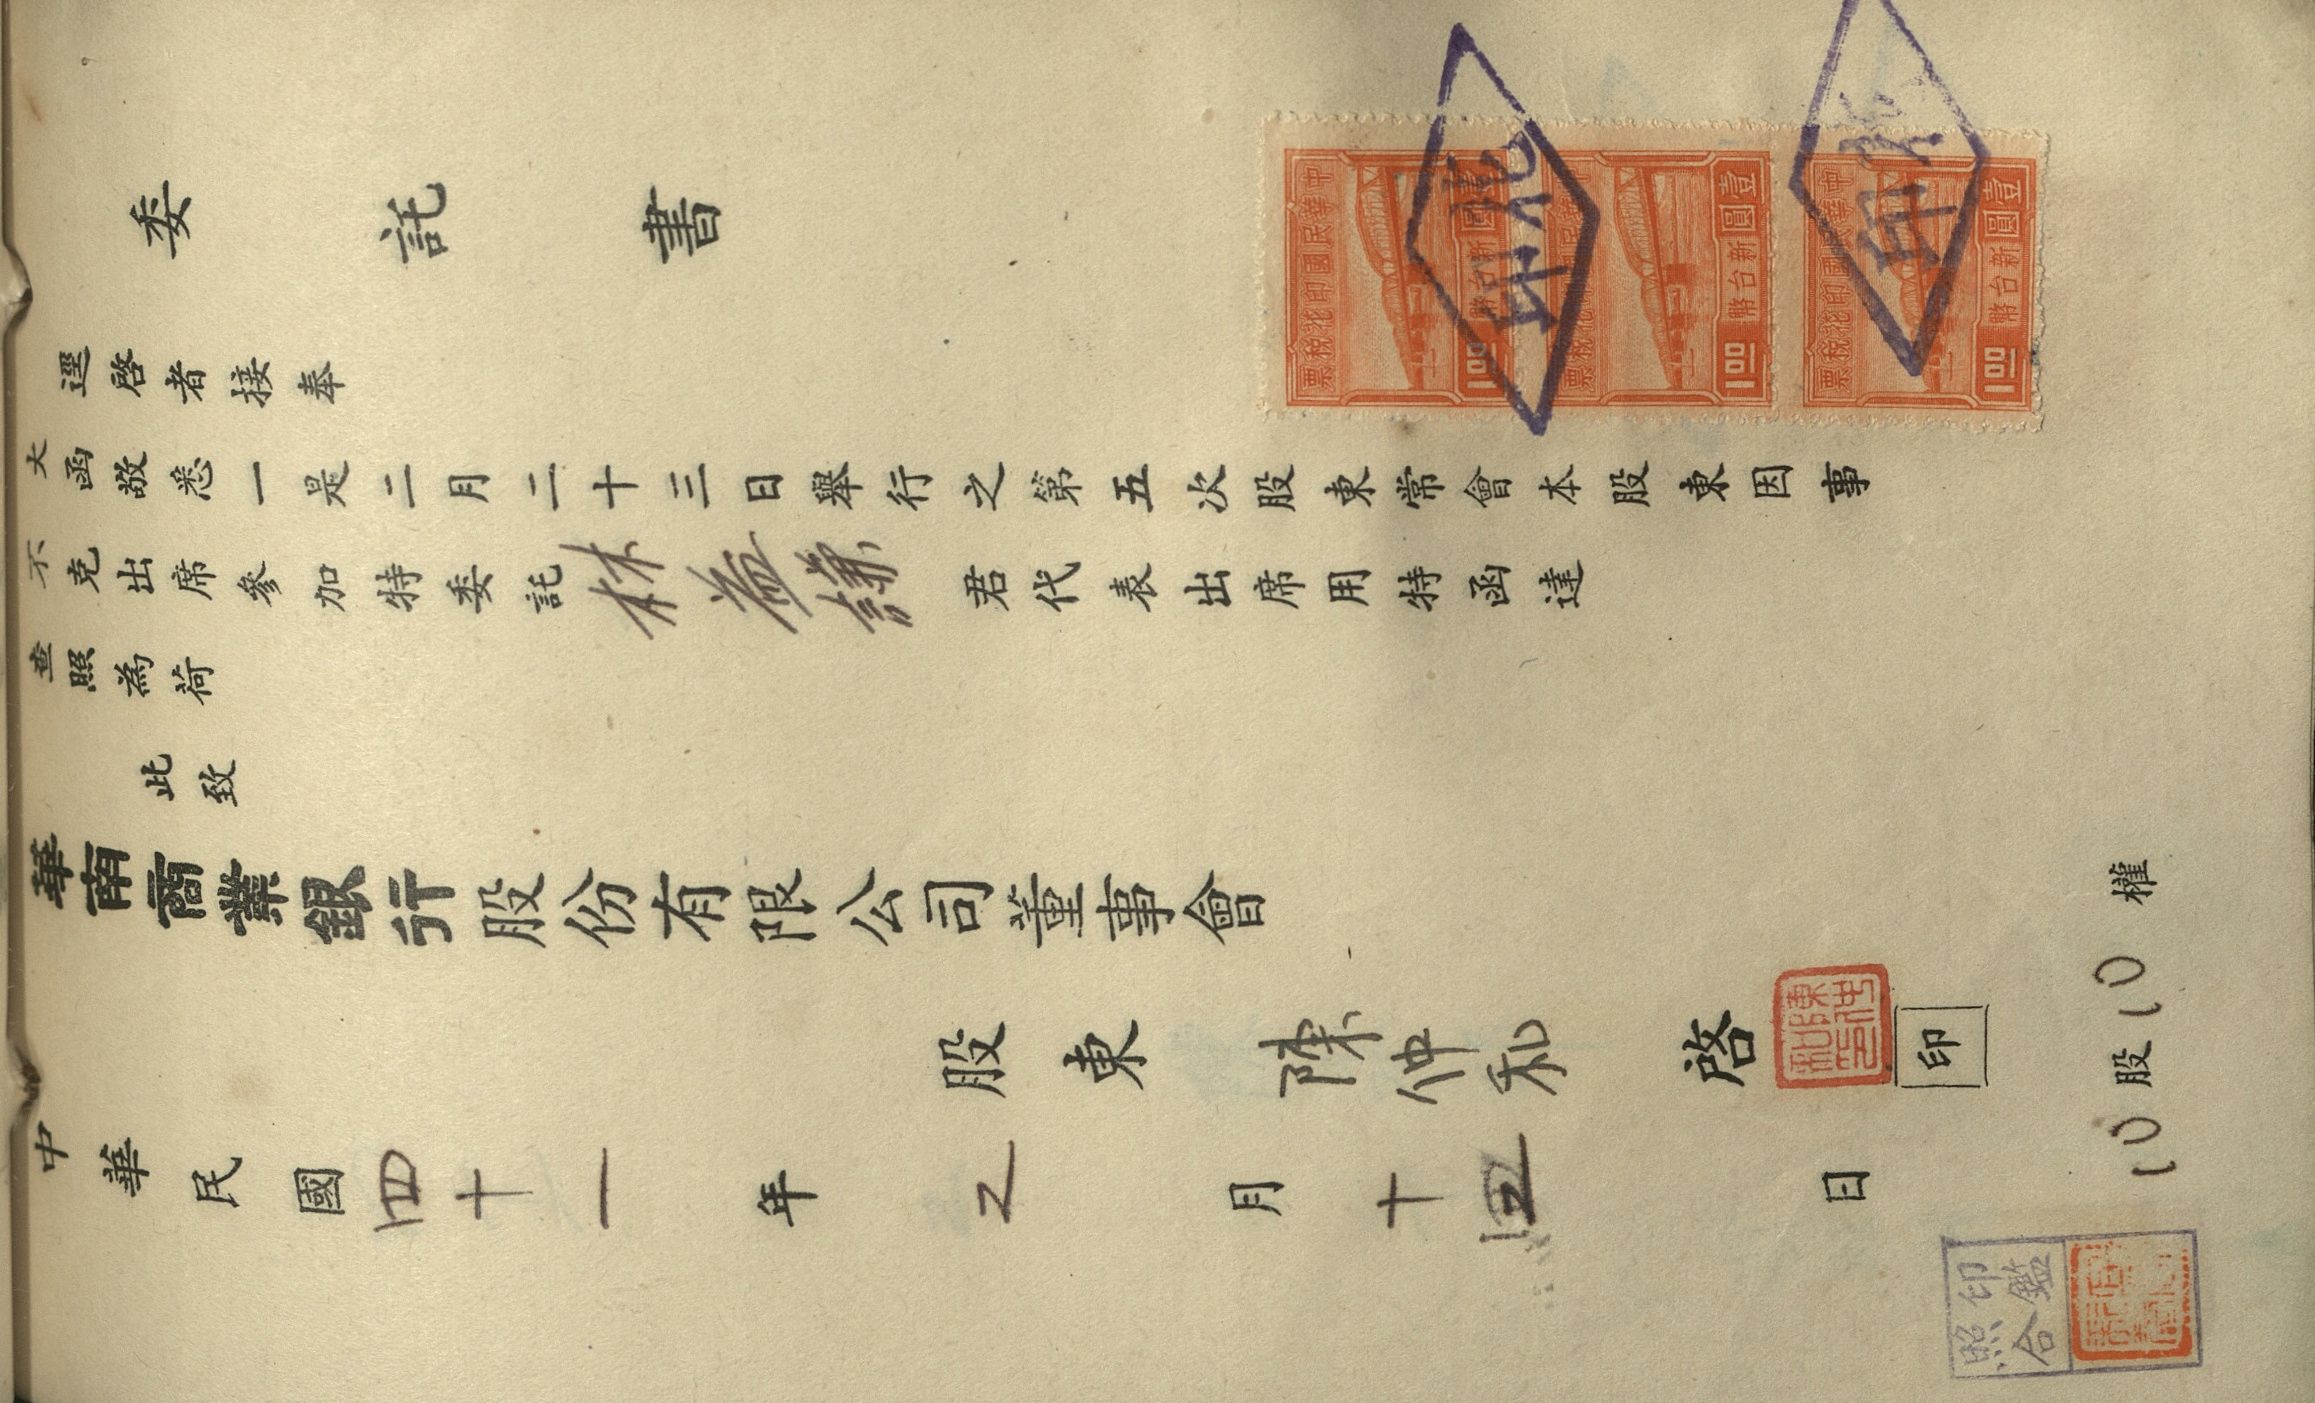 委託書
逕啓者接奉
大函敬悉一是二月二十三日舉行之第五次股東常會本股東因事
不克出席參加特委託林益謙君代表出席用特函達
查照為荷
此致
華南商業銀行股份有限公司董事會
股東 陳仲和 啓 印
中華民國四十一年2月十四日
10股10權
中華民國印花稅票
壹圓
新台幣
1.00
中華民國印花稅票
壹圓
新台幣
1.00
中華民國印花稅票
壹圓
新台幣
1.00
印鑑
照合